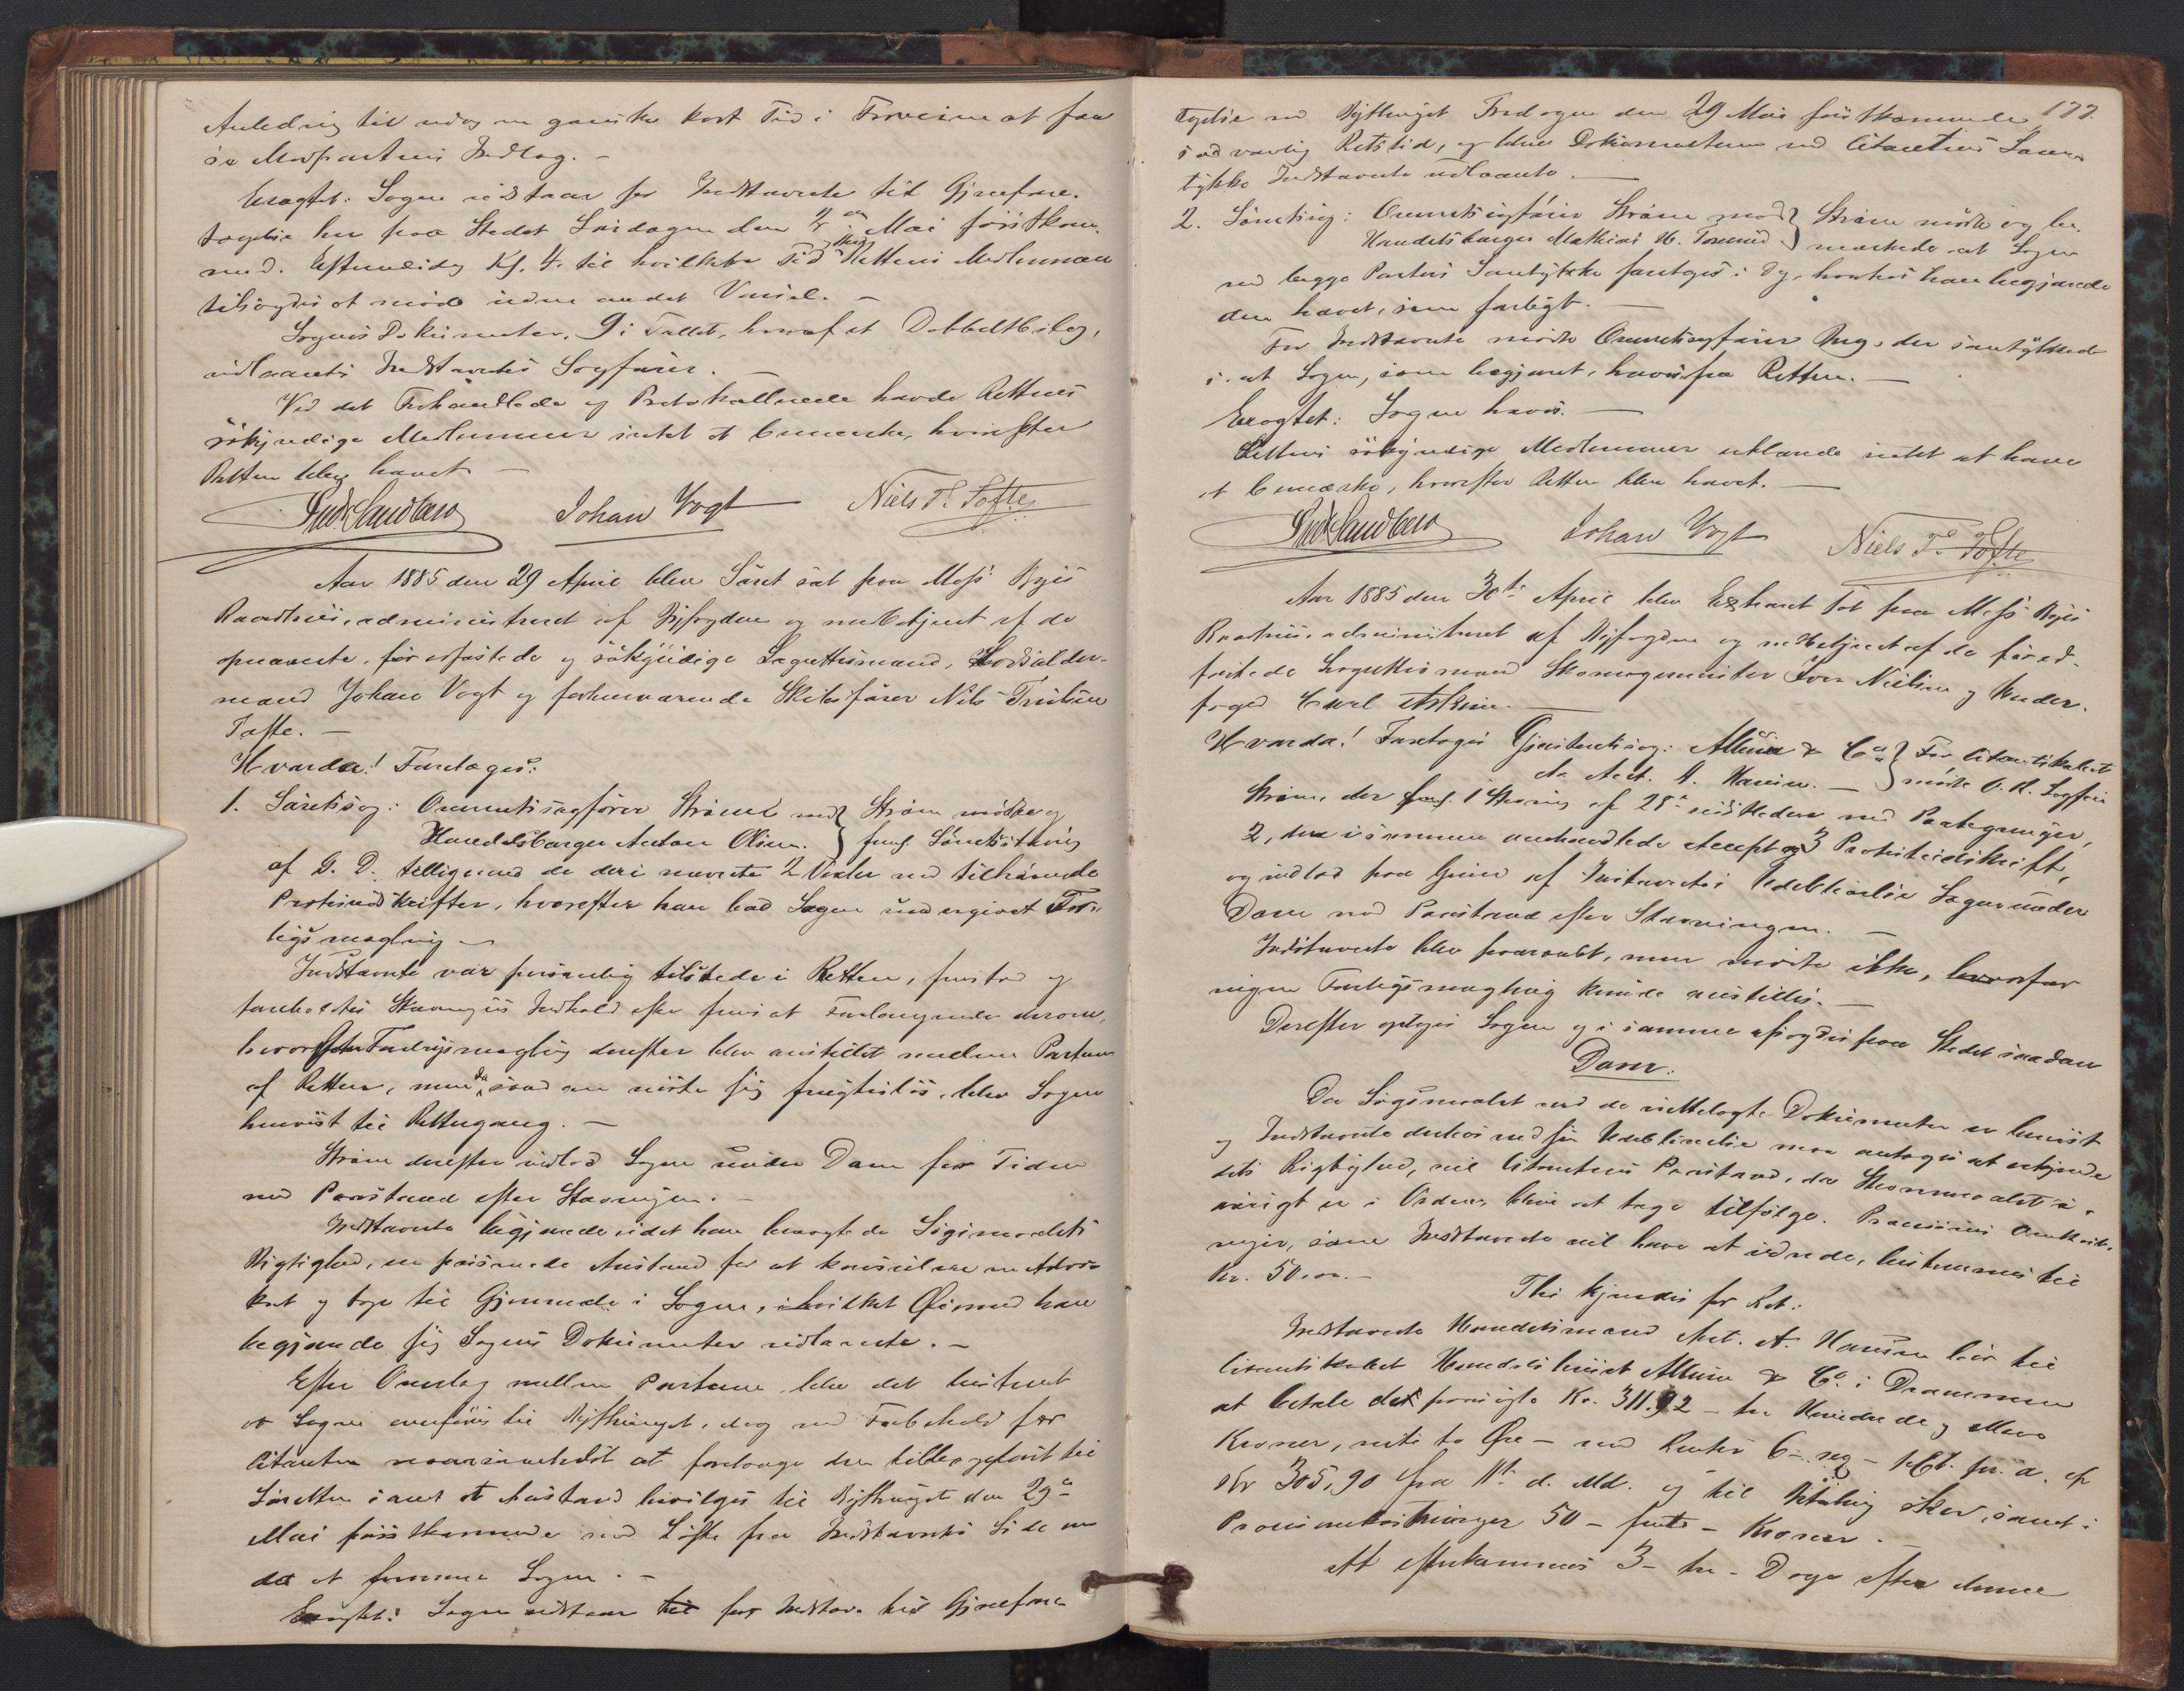 Anledning til udog en ganske kort Tid i Forveien at faa
se Modpartens Indlæg. –
Eragtet: Sagen udstaar for Indstævnte til Gjenfore-
tagelse her paa Stedet Lørdagen den 2den Mai førstkom-
mend. Eftermiddag Kl. 4. til hvilken Tid og Sted Rettens Medlemmer
tilsagdes at møde uden andet Varsel. –
Sagens Dokumenter, 9 i Tallet, hvoraf et Dobbeltbilag,
udlaantes Indstævntes Sagfører. –
Ved det Forhandlede og Protokollerede havde Rettens
søkyndige Medlemmer intet at bemærke, hvorefter
Retten blev hævet –
Fredr Sandberg Johan Vogt Niels T. Tofte
Aar 1885 den 29 April blev Søret sat paa Moss Byes
Raadhus, administreret af Byfogden og medbetjent af de
opnævnte, før edfæstede og søkyndige Lagrettesmænd, Lodsolder-
mand Johan Vogt og forhenværende Skibsfører Nils Trulsen
Tofte. –
Hvorda! Foretages:
1. Søretssag: Overretssagfører Strøm mod } Strøm mødte og
Handelsborger Anton Olsen. } freml. Søretsstævning
af D. D. tilligemed de deri nævnte 2 Vexler med tilhørende
Protestskrifter, hvorefter han bad Sagen undergivet For-
ligsmægling –
Indstævnte var personlig tilstede i Retten, forstod og
foreholdtes Stævningens Indhold efter forud at Forlangende derom,
hvorefter Forligsmægling derefter blev anstillet mellem Parterne
af Retten, men da saadan viste sig frugtesløs, blev Sagen
henvist til Rettergang. –
Strøm derefter indlod Sagen under Dom for Tiden
med Paastand efter Stævningen. –
Indstævnte begjærede idet han benegtede Søgsmaalets
Rigtighed, en passende Anstand for at konsulere en Advo-
kat og tage til Gjenmæle i Sagen, i hvilket Øiemed han
begjærede sig Sagens Dokumenter udlaante. –
Efter Omslag mellem Parterne blev det bestemt
at Sagen overføres til Bythinget, dog med Forbehold for
Citanten at foretage den tilbageført til
Søretten samt at Anstand bevilges til Bythinget den 29de
Mai førstkommende med Løfte fra Indstævntes Side om
da at fremme Sagen. –
Eragtet: Sagen udstaar til for Indstævnte til Gjenfore-
177.
tagelse ved Bythinget Fredagen den 29 Mai førstkommende
sædvanlig Retstid, og blev Dokumenterne med Citantens Sam-
tykke Indstævnte udlaante. –
2. Søretssag: Overretssagfører Strøm mod } Strøm mødte og be-
Handelsborger Mathias H. Torsrud. } mærkede at Sagen
med begge Parters Samtykke foretages i Dag, hvorhos han begjærede
den hævet, som forligt. –
For Indstævnte mødte Overretssagfører Bug, der samtykkede
i at Sagen, som begjæret, hæves fra Retten. –
Eragtet: Sagen hæves. –
Rettens søkyndige Medlemmer erklærede intet at have
at bemærke, hvorefter Retten blev hævet. –
Fredr Sandberg Johan Vogt Niels T. Tofte
Aar 1885 den 30te April blev Extraret sat paa Moss Byes
Raadhus, administreret af Byfogden og medbetjent af de føred-
fæstede Lagrettesmænd Skomagermester Iver Nielsen og Under-
foged Carl
Hvorda! Foretages Gjæsteretssag: Allum & Co } For Citantskabet
Ant. A. Hansen. – } mødte O. R. Sagfører
Strøm, der freml. 1 Stævning af 28de sidstleden med Paategninger,
2, den i samme omhandlede Accept og 3 Protestudskrift,
og indlod paa Grund af Indstævntes Udeblivelse Sagen under
Dom med Paastand efter Stævningen. –
Indstævnte blev paaraabt, men mødte ikke, hvorfor
ingen Forligsmægling kunde anstilles. –
Derefter optoges Sagen og i samme afsagdes paa Stedet saadan
Dom:
Da Søgsmaalet ved de irettelagte Dokumenter er bevist
og Indstævnte derhos ved sin Udeblivelse maa antages at erkjende
dets Rigtighed, vil Citantens Paastand, da Stevnemaalet i-
øvrigt er i Orden, blive at tage tilfølge. Processens Omkostnin-
ger, som Indstævnte vil have at udrede, bestemmes til
Kr. 50.00. –
Thi kjendes for Ret:
Indstævnte Handelsmand Ant. A. Hansen bør til
Citantskabet Handelshuset Allum & Co. i Drammen
at betale det paasøgte Kr. 311.92 – tre Hundrede og elleve
Kroner, niti to Øre – med Renter 6 – sex – pCt. pr. a. af
Kr 305,90 fra 11te d. Md. og til Betaling skeer, samt i
Procesomkostninger 50 – femti – Kroner. –
At efterkommes 3 – tre – Dage efter denne